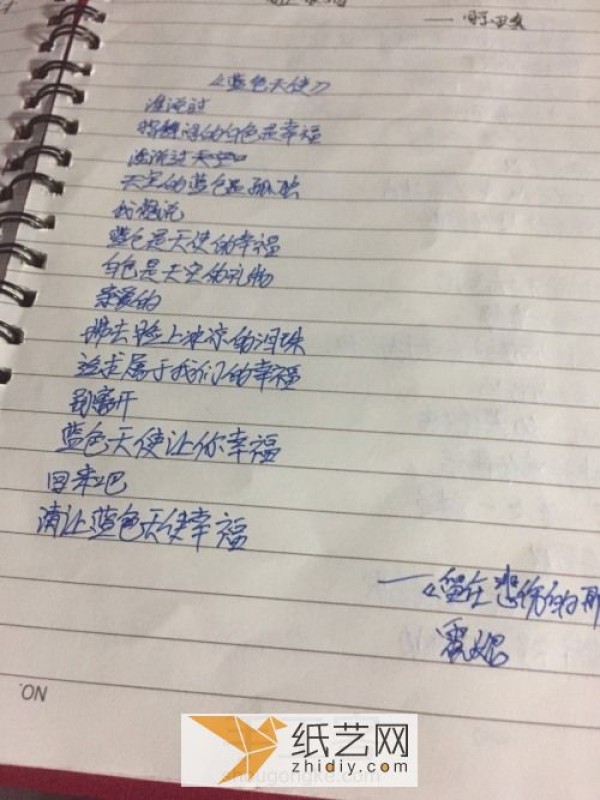 《蓝色天使》
谁说过
婚纱的白色是幸福
谁说过天空
天空的蓝色是孤独
我想说
蓝色是天使的幸福
白色是天空的礼物
亲爱的
拂去脸上冰凉的泪珠
追求属于我们的幸福
别离开
蓝色天使让你幸福
回来吧
请让蓝色天使幸福
——《留在悲伤的那
NO.
纸艺网
zhidiy.com
shougongke.com